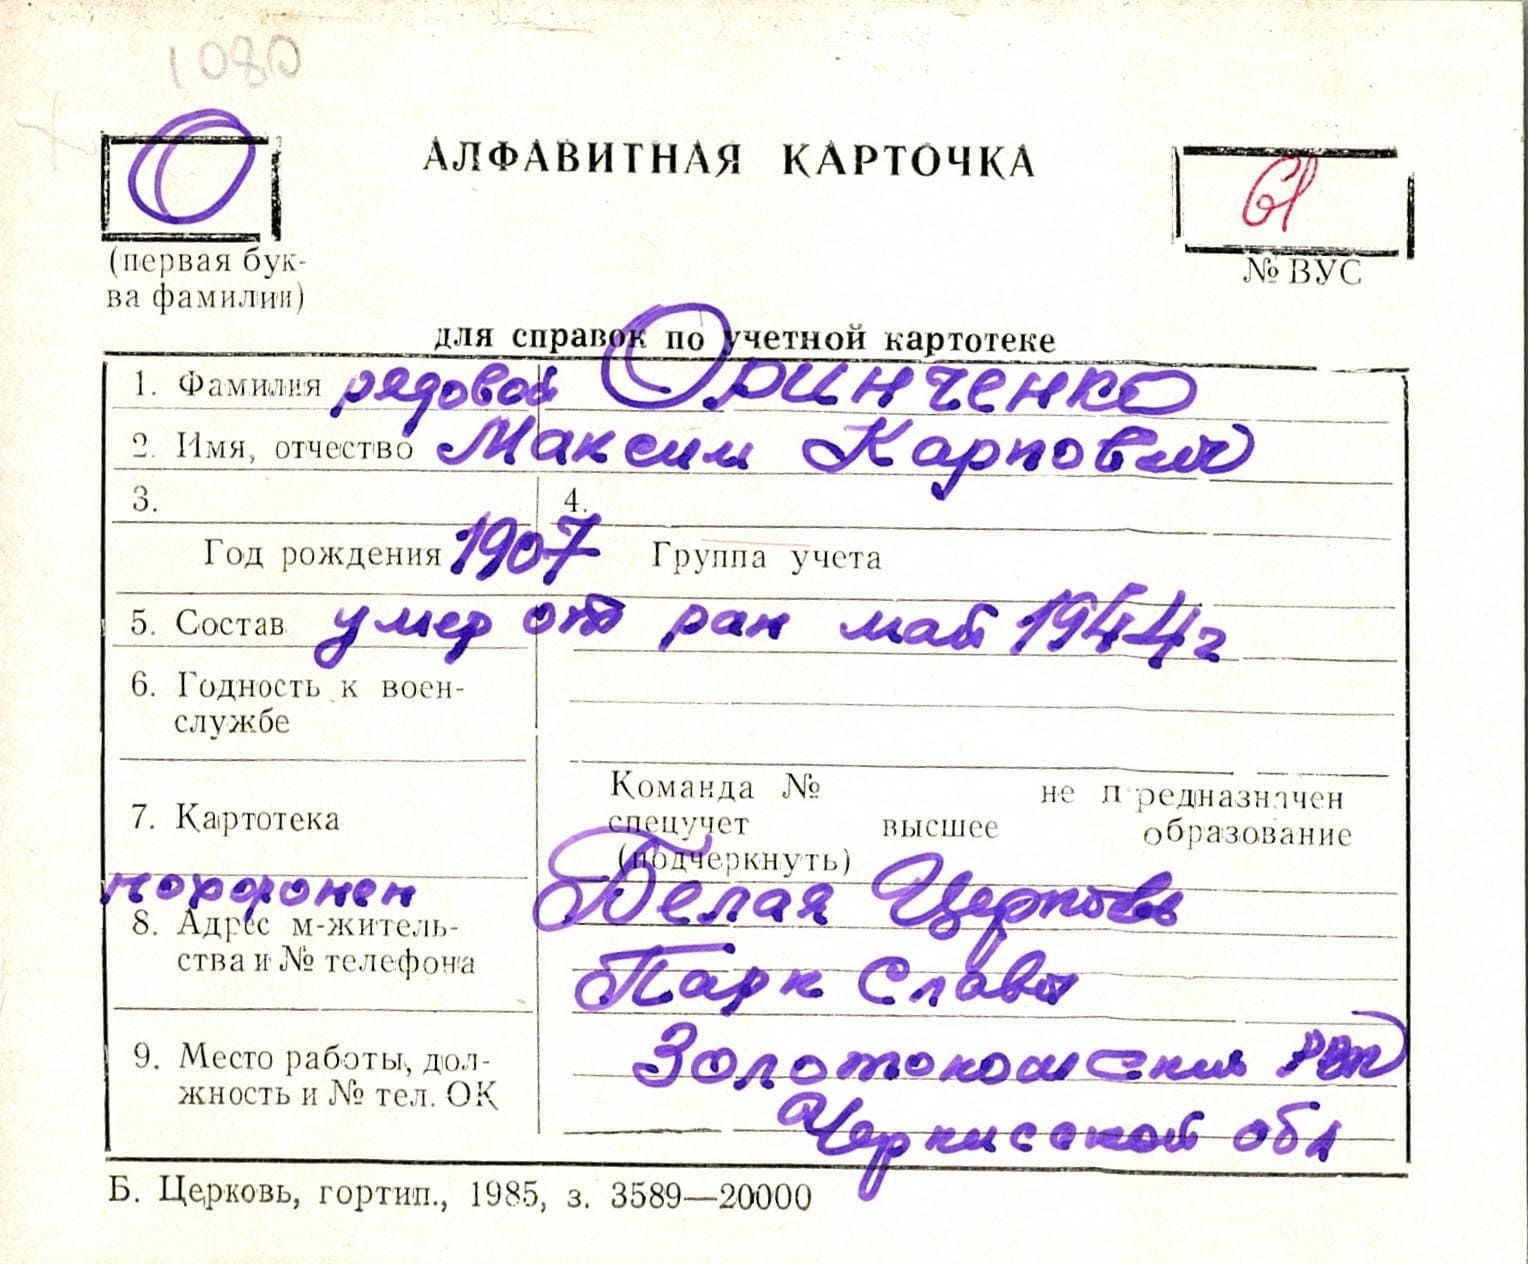 1080
О
АЛФАВИТНАЯ КАРТОЧКА
61
(первая бук-
ва фамилии)
№ ВУС
для справок по учетной картотеке
1. Фамилия рядовой Оринченко
2. Имя, отчество Максим Карпович
3. 4.
Год рождения 1907 Группа учета
5. Состав умер от ран май 1944г
6. Годность к воен-
службе
Команда № не предназначен
7. Картотека
спецучет высшее образование
(подчеркнуть)
похоронен Белая Церковь
8. Адрес м-житель-
ства и № телефона
Парк Славы
9. Место работы, дол-
жность и № тел. ОК
Золотоношский РВК
Черкасской обл
Б. Церковь, гортип., 1985, з. 3589—20000